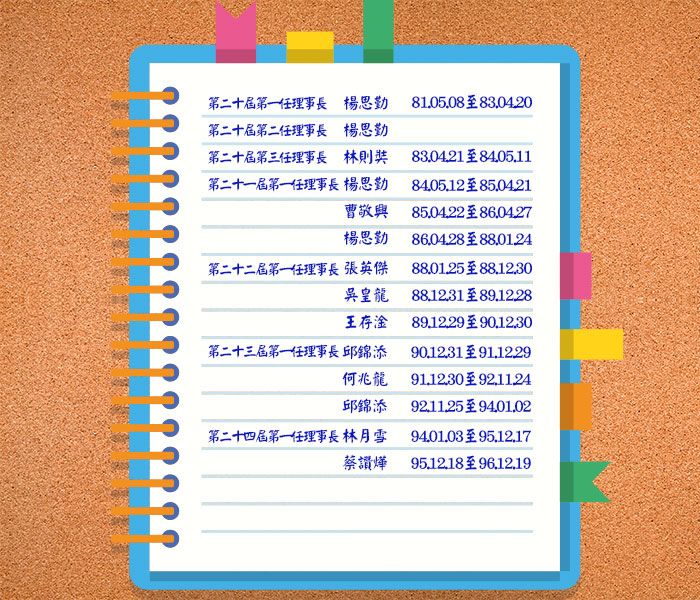 第二十屆第一任理事長 楊思勤 81.05.08至83.04.20
第二十屆第二任理事長 楊思勤
第二十屆第三任理事長 林則奘 83.04.21至84.05.11
第二十一屆第一任理事長 楊思勤 84.05.12至85.04.21
曹敬興 85.04.22至86.04.27
楊思勤 86.04.28至88.01.24
第二十二屆第一任理事長 張英傑 88.01.25至88.12.30
吳皇龍 88.12.31至89.12.28
王存淦 89.12.29至90.12.30
第二十三屆第一任理事長 邱錦添 90.12.31至91.12.29
何兆龍 91.12.30至92.11.24
邱錦添 92.11.25至94.01.02
第二十四屆第一任理事長 林月雪 94.01.03至95.12.17
蔡讚燁 95.12.18至96.12.19